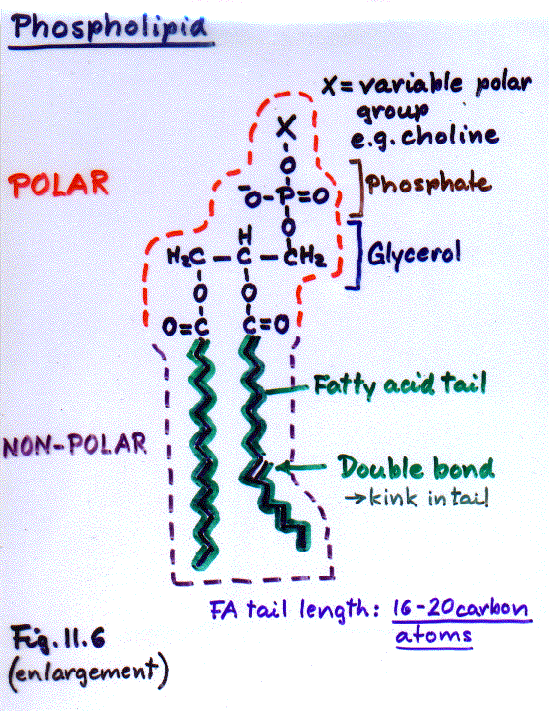 Phospholipid
X= variable polar
group
e.g. choline
X
O
POLAR
⁻O-P=O
Phosphate
O
H
H₂C - C - CH₂
Glycerol
O O
O=C C=O
Fatty acid tail
NON-POLAR
Double bond
→kink in tail
FA tail length: 16-20 carbon
atoms
Fig. 11.6
(enlargement)